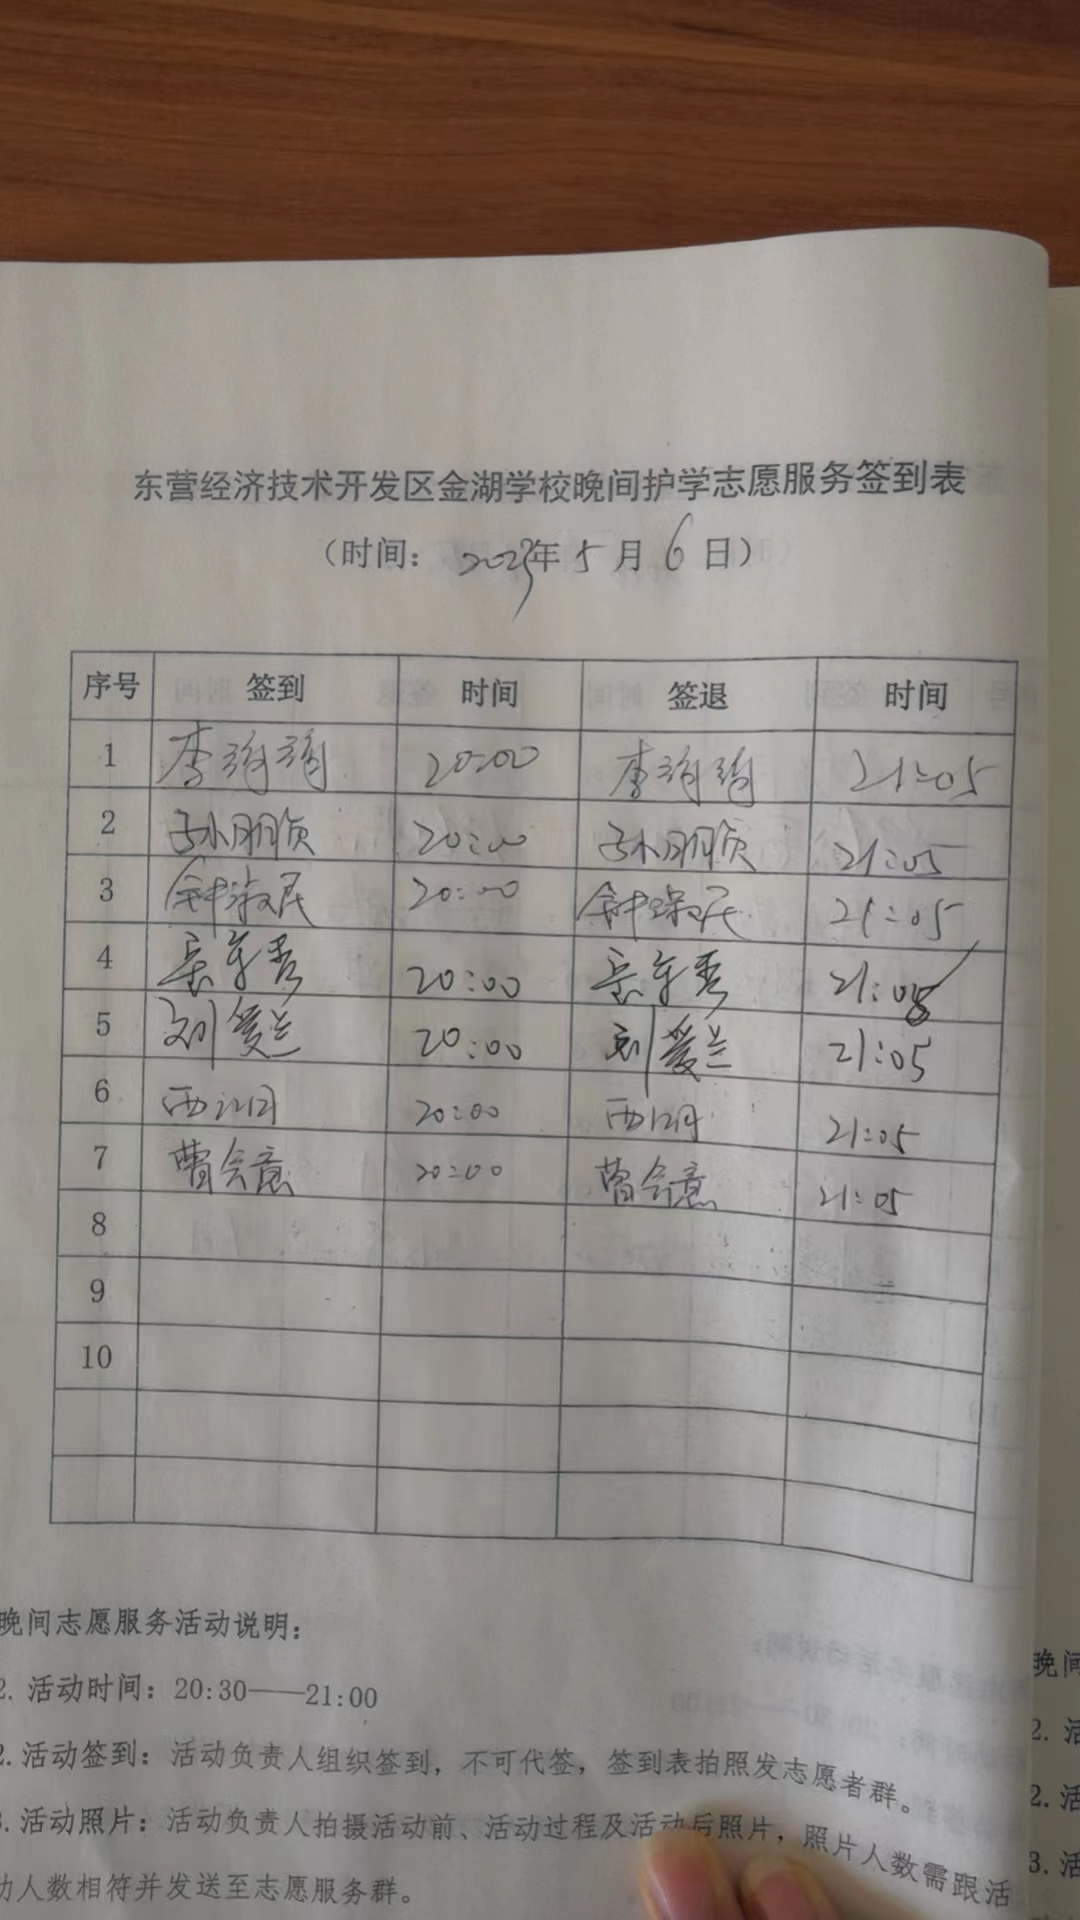 东营经济技术开发区金湖学校晚间护学志愿服务签到表
（时间：2023年5月6日）
序号 签到 时间 签退 时间
1 李 20:00 李 21:05
2 孙朋 20:00 孙朋 21:05
3 钟淑民 20:00 钟淑民 21:05
4 秀 20:00 秀 21:05
5 刘爱兰 20:00 刘爱兰 21:05
6 西 20:00 西 21:05
7 曹会意 20:00 曹会意 21:05
8
9
10
晚间志愿服务活动说明：
2. 活动时间：20:30——21:00
2. 活动签到：活动负责人组织签到，不可代签，签到表拍照发志愿者群。
3. 活动照片：活动负责人拍摄活动前、活动过程及活动后照片，照片人数需跟活
动人数相符并发送至志愿服务群。
晚间
2. 活
2. 活
3. 活